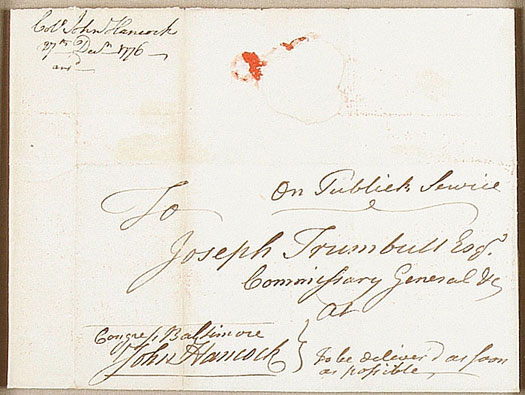 Colo. John Hancock
27th Decm. 1776
and
On Publick Service
To
Joseph Trumbull Esqr.
Commissary General &c
At
Congress Baltimore
John Hancock
to be deliver'd as soon
as possible